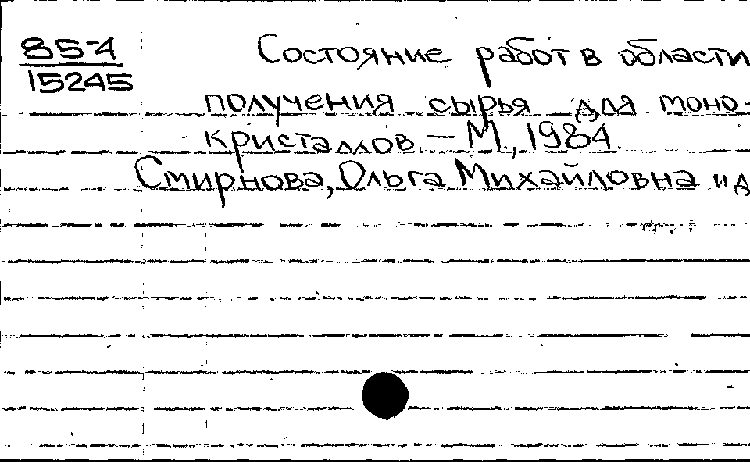 85-4
15245
Состояние работ в области
получения сырья для моно-
кристаллов. — М., 1984.
Смирнова, Ольга Михайловна и д